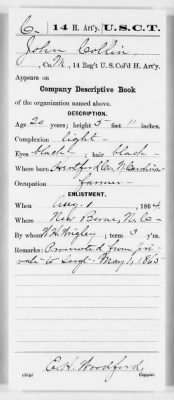 C. 14 H. Art'y. U.S.C.T.
John Collin
, Co. M, 14 Reg't U.S. Col'd H. Art'y.
Appears on
Company Descriptive Book
of the organization named above.
DESCRIPTION.
Age 20 years; height 5 feet 11 inches.
Complexion Light
Eyes black; hair black
Where born Hertford Co, N. Carolina
Occupation farmer
ENLISTMENT.
When Aug. 1, 1864.
Where New Berne, N.C.
By whom W.H. Wrigley; term 3 y'rs.
Remarks: Promoted from pri-
vate to Sergt. May 1, 1865
C.H. Woodford,
Copyist.